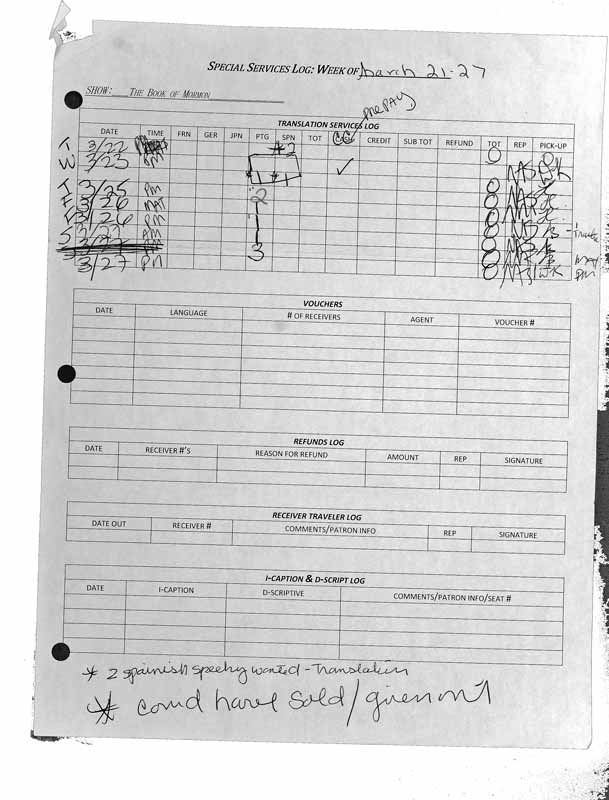 SPECIAL SERVICES LOG: WEEK OF March 21-27
SHOW: THE BOOK OF MORMON
prepay
TRANSLATION SERVICES LOG
DATE TIME FRN GER JPN PTG SPN TOT CC CREDIT SUB TOT REFUND TOT REP PICK-UP
T 3/22 *2 0
W 3/23 PM ✓
T 3/25 PM 2 0
F 3/26 MAT 0
3/26 PM 0
S AM 0
3 0
3/27 PM 0 WK PM
VOUCHERS
DATE LANGUAGE # OF RECEIVERS AGENT VOUCHER #
REFUNDS LOG
DATE RECEIVER #'S REASON FOR REFUND AMOUNT REP SIGNATURE
RECEIVER TRAVELER LOG
DATE OUT RECEIVER # COMMENTS/PATRON INFO REP SIGNATURE
I-CAPTION & D-SCRIPT LOG
DATE I-CAPTION D-SCRIPTIVE COMMENTS/PATRON INFO/SEAT #
* 2 spainish speekg wanted - Translation
* could have sold/given out